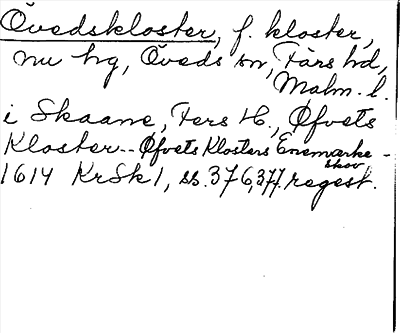 Övedskloster, f. kloster,
nu hg, Öveds sn, Färs hd,
Malm. l.
i Skaane, Fers H., Øfvets
Kloster -- Øfvets Klosters Enemærke-
skov
1614 KrSk 1, ss. 376, 377. regest.